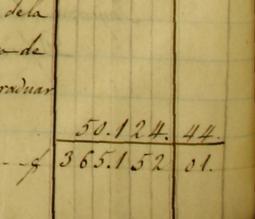 dela
a de
raduar
50.124. 44.
365.152 01.